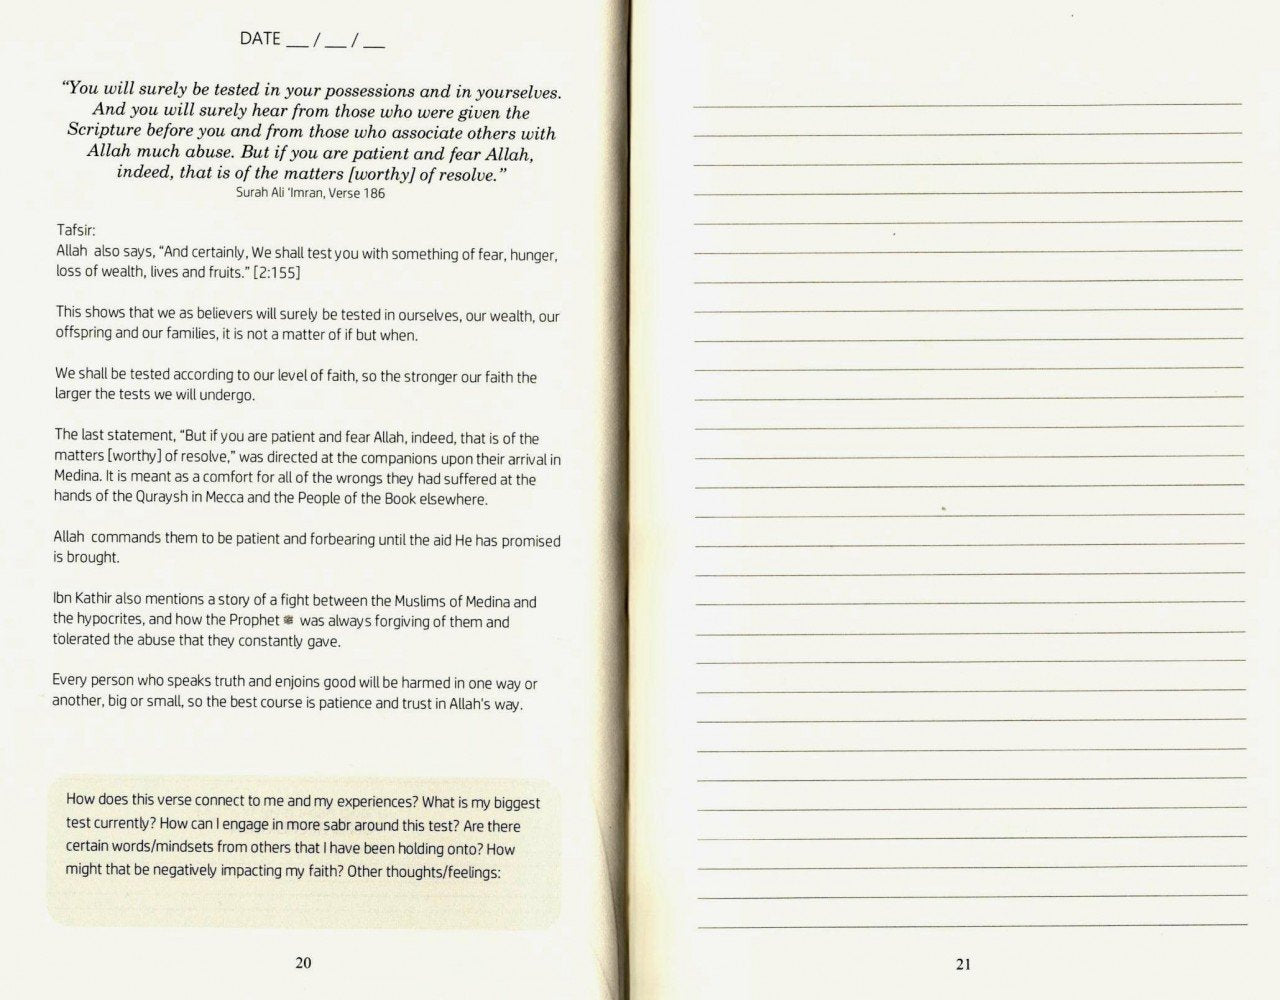 DATE __ / __ / __
“You will surely be tested in your possessions and in yourselves.
And you will surely hear from those who were given the
Scripture before you and from those who associate others with
Allah much abuse. But if you are patient and fear Allah,
indeed, that is of the matters [worthy] of resolve.”
Surah Ali ‘Imran, Verse 186
Tafsir:
Allah also says, “And certainly, We shall test you with something of fear, hunger,
loss of wealth, lives and fruits.” [2:155]
This shows that we as believers will surely be tested in ourselves, our wealth, our
offspring and our families, it is not a matter of if but when.
We shall be tested according to our level of faith, so the stronger our faith the
larger the tests we will undergo.
The last statement, “But if you are patient and fear Allah, indeed, that is of the
matters [worthy] of resolve,” was directed at the companions upon their arrival in
Medina. It is meant as a comfort for all of the wrongs they had suffered at the
hands of the Quraysh in Mecca and the People of the Book elsewhere.
Allah commands them to be patient and forbearing until the aid He has promised
is brought.
Ibn Kathir also mentions a story of a fight between the Muslims of Medina and
the hypocrites, and how the Prophet ﷺ was always forgiving of them and
tolerated the abuse that they constantly gave.
Every person who speaks truth and enjoins good will be harmed in one way or
another, big or small, so the best course is patience and trust in Allah's way.
How does this verse connect to me and my experiences? What is my biggest
test currently? How can I engage in more sabr around this test? Are there
certain words/mindsets from others that I have been holding onto? How
might that be negatively impacting my faith? Other thoughts/feelings:
20
21